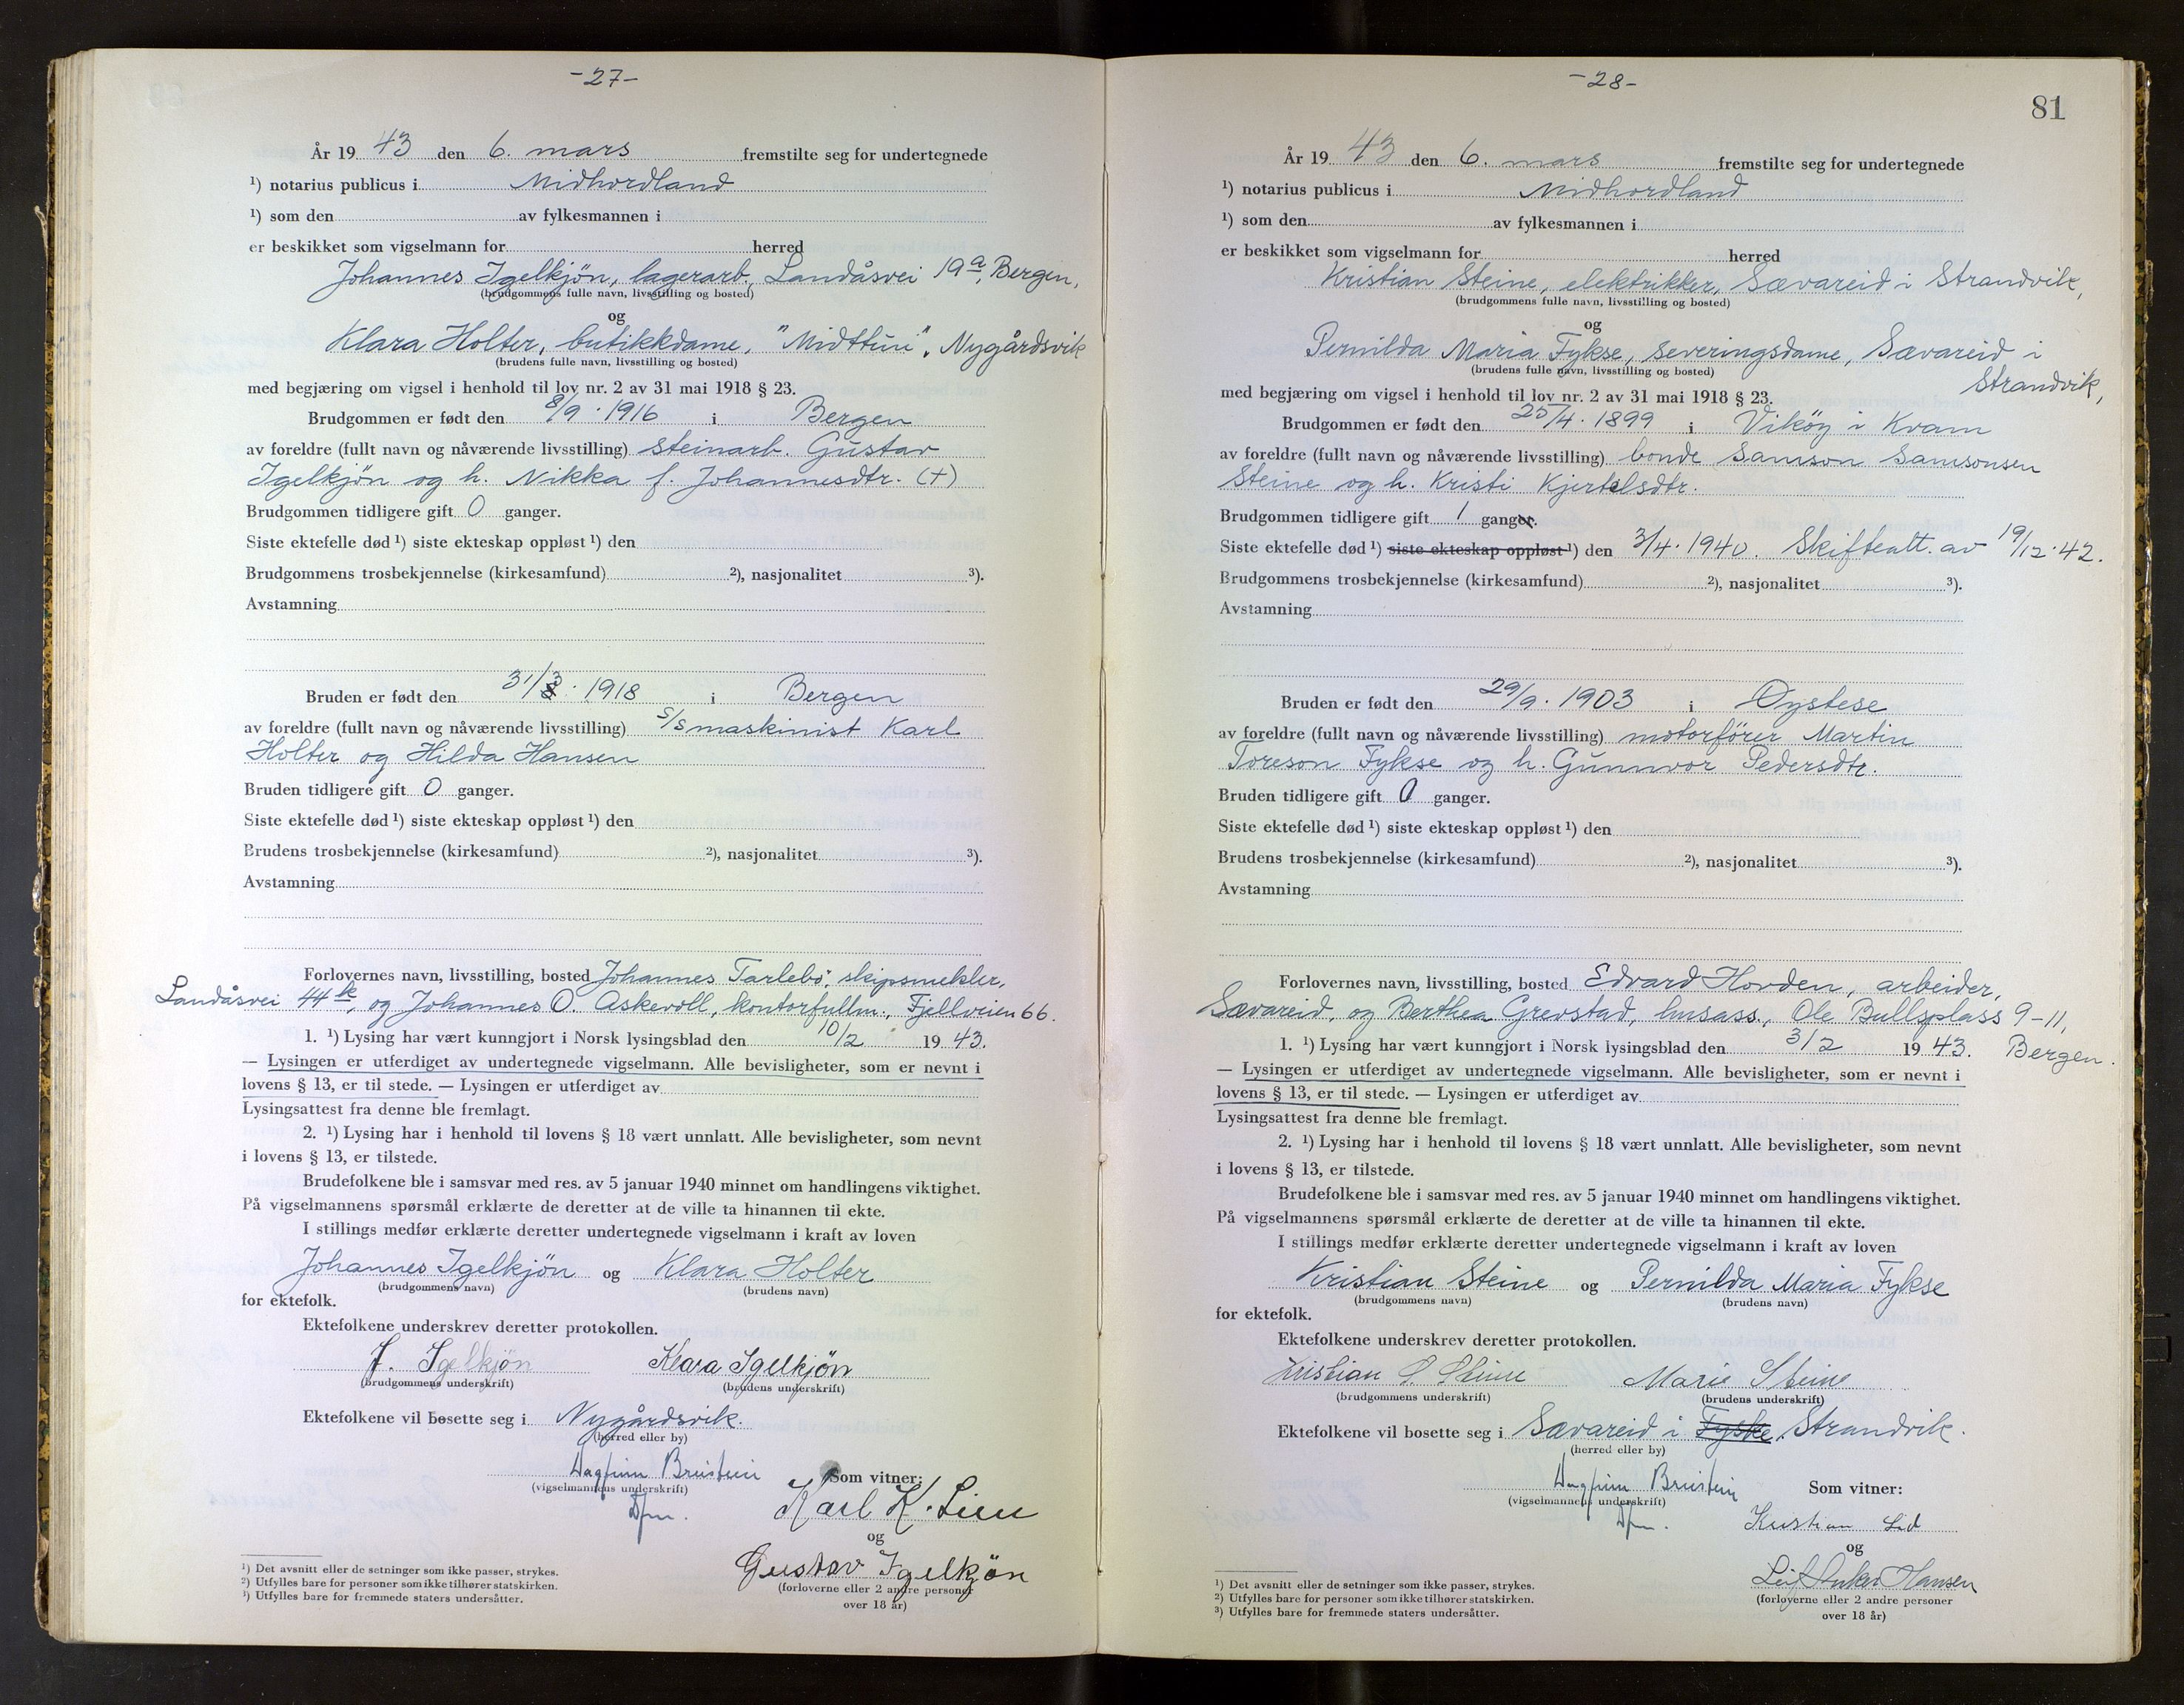 -27-
År 19 43 den 6. mars fremstilte seg for undertegnede
¹) notarius publicus i Midhordland
¹) som den av fylkesmannen i
er beskikket som vigselmann for herred
Johannes Igelkjön, lagerarb., Landåsvei 19a, Bergen,
(brudgommens fulle navn, livsstilling og bosted)
og
Klara Holter, butikkdame, "Midttun", Nygårdsvik
(brudens fulle navn, livsstilling og bosted)
med begjæring om vigsel i henhold til lov nr. 2 av 31 mai 1918 § 23.
Brudgommen er født den 8/9. 1916 i Bergen
av foreldre (fullt navn og nåværende livsstilling) steinarb. Gustav
Igelkjön og h. Nikka f. Johannesdtr. (+)
Brudgommen tidligere gift 0 ganger.
Siste ektefelle død ¹) siste ekteskap oppløst ¹) den
Brudgommens trosbekjennelse (kirkesamfund) ²), nasjonalitet ³).
Avstamning
Bruden er født den 31/3. 1918 i Bergen
av foreldre (fullt navn og nåværende livsstilling) s/s maskinist Karl
Holter og Hilda Hansen
Bruden tidligere gift 0 ganger.
Siste ektefelle død ¹) siste ekteskap oppløst ¹) den
Brudens trosbekjennelse (kirkesamfund) ²), nasjonalitet ³).
Avstamning
Forlovernes navn, livsstilling, bosted Johannes Tarlebö, skipsmekler,
Landåsvei 44, og Johannes O. Askevoll, kontorfullm., Fjellveien 66.
1. ¹) Lysing har vært kunngjort i Norsk lysingsblad den 10/2 19 43.
— Lysingen er utferdiget av undertegnede vigselmann. Alle bevisligheter, som er nevnt i
lovens § 13, er til stede. — Lysingen er utferdiget av
Lysingsattest fra denne ble fremlagt.
2. ¹) Lysing har i henhold til lovens § 18 vært unnlatt. Alle bevisligheter, som nevnt
i lovens § 13, er tilstede.
Brudefolkene ble i samsvar med res. av 5 januar 1940 minnet om handlingens viktighet.
På vigselmannens spørsmål erklærte de deretter at de ville ta hinannen til ekte.
I stillings medfør erklærte deretter undertegnede vigselmann i kraft av loven
Johannes Igelkjön og Klara Holter
(brudgommens navn) (brudens navn)
for ektefolk.
Ektefolkene underskrev deretter protokollen.
J. Igelkjön Klara Igelkjön
(brudgommens underskrift) (brudens underskrift)
Ektefolkene vil bosette seg i Nygårdsvik.
(herred eller by)
Dagfinn Breistein Som vitner:
(vigselmannens underskrift)
Dfm. Karl K. Lien
og
Gustav Igelkjön
(forloverne eller 2 andre personer
over 18 år)
¹) Det avsnitt eller de setninger som ikke passer, strykes.
²) Utfylles bare for personer som ikke tilhører statskirken.
³) Utfylles bare for fremmede staters undersåtter.
-28-
81
År 19 43 den 6. mars fremstilte seg for undertegnede
¹) notarius publicus i Midhordland
¹) som den av fylkesmannen i
er beskikket som vigselmann for herred
Kristian Steine, elektrikker, Sævareid i Strandvik,
(brudgommens fulle navn, livsstilling og bosted)
og
Pernilda Maria Fykse, serveringsdame, Sævareid i
(brudens fulle navn, livsstilling og bosted)
Strandvik,
med begjæring om vigsel i henhold til lov nr. 2 av 31 mai 1918 § 23.
Brudgommen er født den 25/4. 1899 i Viköy i Kvam
av foreldre (fullt navn og nåværende livsstilling) bonde Samson Samsonsen
Steine og h. Kristi Kjertelsdtr.
Brudgommen tidligere gift 1 ganger.
Siste ektefelle død ¹) siste ekteskap oppløst ¹) den 3/4. 1940. Skifteatt. av 19/12. 42.
Brudgommens trosbekjennelse (kirkesamfund) ²), nasjonalitet ³).
Avstamning
Bruden er født den 29/9. 1903 i Øystese
av foreldre (fullt navn og nåværende livsstilling) motorförer Martin
Toreson Fykse og h. Gunnvor Pedersdtr.
Bruden tidligere gift 0 ganger.
Siste ektefelle død ¹) siste ekteskap oppløst ¹) den
Brudens trosbekjennelse (kirkesamfund) ²), nasjonalitet ³).
Avstamning
Forlovernes navn, livsstilling, bosted Edvard Hovden, arbeider,
Sævareid, og Berthea Grevstad, husass., Ole Bullsplass 9-11,
1. ¹) Lysing har vært kunngjort i Norsk lysingsblad den 3/2 19 43. Bergen.
— Lysingen er utferdiget av undertegnede vigselmann. Alle bevisligheter, som er nevnt i
lovens § 13, er til stede. — Lysingen er utferdiget av
Lysingsattest fra denne ble fremlagt.
2. ¹) Lysing har i henhold til lovens § 18 vært unnlatt. Alle bevisligheter, som nevnt
i lovens § 13, er tilstede.
Brudefolkene ble i samsvar med res. av 5 januar 1940 minnet om handlingens viktighet.
På vigselmannens spørsmål erklærte de deretter at de ville ta hinannen til ekte.
I stillings medfør erklærte deretter undertegnede vigselmann i kraft av loven
Kristian Steine og Pernilda Maria Fykse
(brudgommens navn) (brudens navn)
for ektefolk.
Ektefolkene underskrev deretter protokollen.
Kristian S Steine Marie Steine
(brudgommens underskrift) (brudens underskrift)
Ektefolkene vil bosette seg i Sævareid i Fyske Strandvik.
(herred eller by)
Dagfinn Breistein Som vitner:
(vigselmannens underskrift)
Dfm. Kristian Lid
og
Leif Anker Hansen
(forloverne eller 2 andre personer
over 18 år)
¹) Det avsnitt eller de setninger som ikke passer, strykes.
²) Utfylles bare for personer som ikke tilhører statskirken.
³) Utfylles bare for fremmede staters undersåtter.